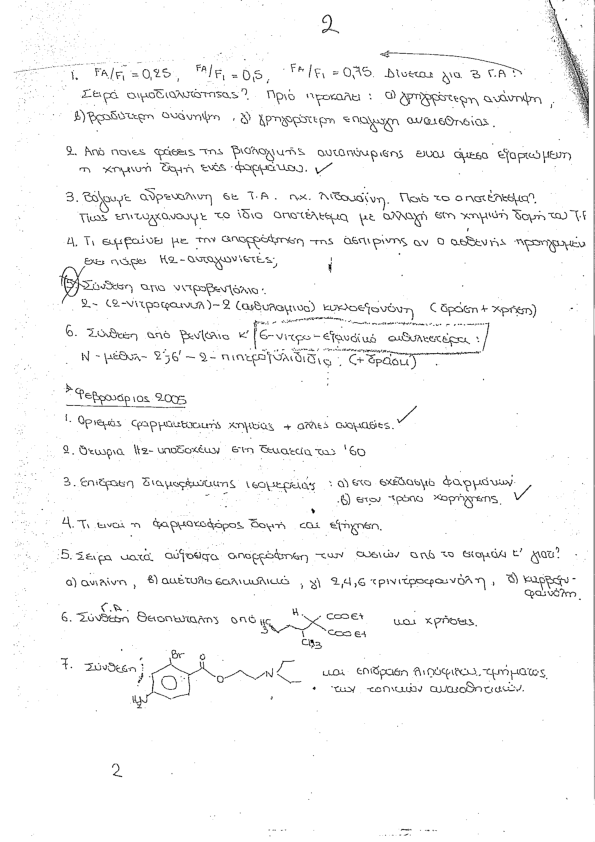 2
1. FA/FI = 0,25, FA/FI = 0,5, FA/FI = 0,75. Δίνεται για 3 Γ.Α:
Σειρά αιμοδιαλυτότητας? Ποιό προκαλεί: α) γρηγορότερη ανάνηψη,
β) βραδύτερη ανάνηψη, γ) γρηγορότερη επαγωγη αναισθησίας.
2. Από ποιες φάσεις της βιολογικής ανταπόκρισης ειναι άμεσα εξαρτώμενη
η χημική δομή ενός φαρμάκου. ✓
3. Βάζουμε αδρεναλινη σε Τ.Α. πχ. λιδοκαΐνη. Ποιό το αποτέλεσμα?
Πώς επιτυγχάνουμε το ίδιο αποτέλεσμα με αλλαγή στη χημική δομή του Τ.Α
4. Τι συμβαίνει με την απορρόφηση της ασπιρίνης αν ο ασθενής προηγουμέν
εχει πάρει Η2-ανταγωνιστές;
5. Σύνθεση απο νιτροβενζόλιο:
2-(2-νιτροφαινυλ)-2 (αιθυλαμινο) κυκλοεξανόνη (δράση + χρήση)
6. Σύνθεση από βενζόλιο κ' 6-νιτρο-εξανοϊκό αιθυλεστέρα:
Ν-μέθυλ-2',6'-2-πιπεροξυλιδίδιο. (+δράση)
Φεβρουάριος 2005
1. Ορισμός φαρμακευτικής χημείας + άλλες ονομασίες. ✓
2. Θεωρια Η2-υποδοχέων στη δεκαετία του '60
3. Επιδραση διαμορφωτικης ισομερειάς: α) στο σχεδιασμό φαρμάκων.
β) στον τρόπο χορήγησης. ✓
4. Τι ειναι η φαρμακοφόρος δομή και εξήγηση.
5. Σειρα κατά αύξουσα απορρόφηση των ουσιών από το στομάχι κ' γιατι?
α) ανιλίνη, β) ακέτυλοσαλικυλικό, γ) 2,4,6 τρινιτροφαινόλη, δ) καρβοξυ-
φαινόλη.
Γ.Α.
6. Σύνθεση θειοπενταλης από H3C H. COOEt COOEt CH3 και χρήσεις.
7. Σύνθεση: Br O O N H2N και επίδραση λιπόφιλου τμήματος
των τοπικών αναισθητικών.
2